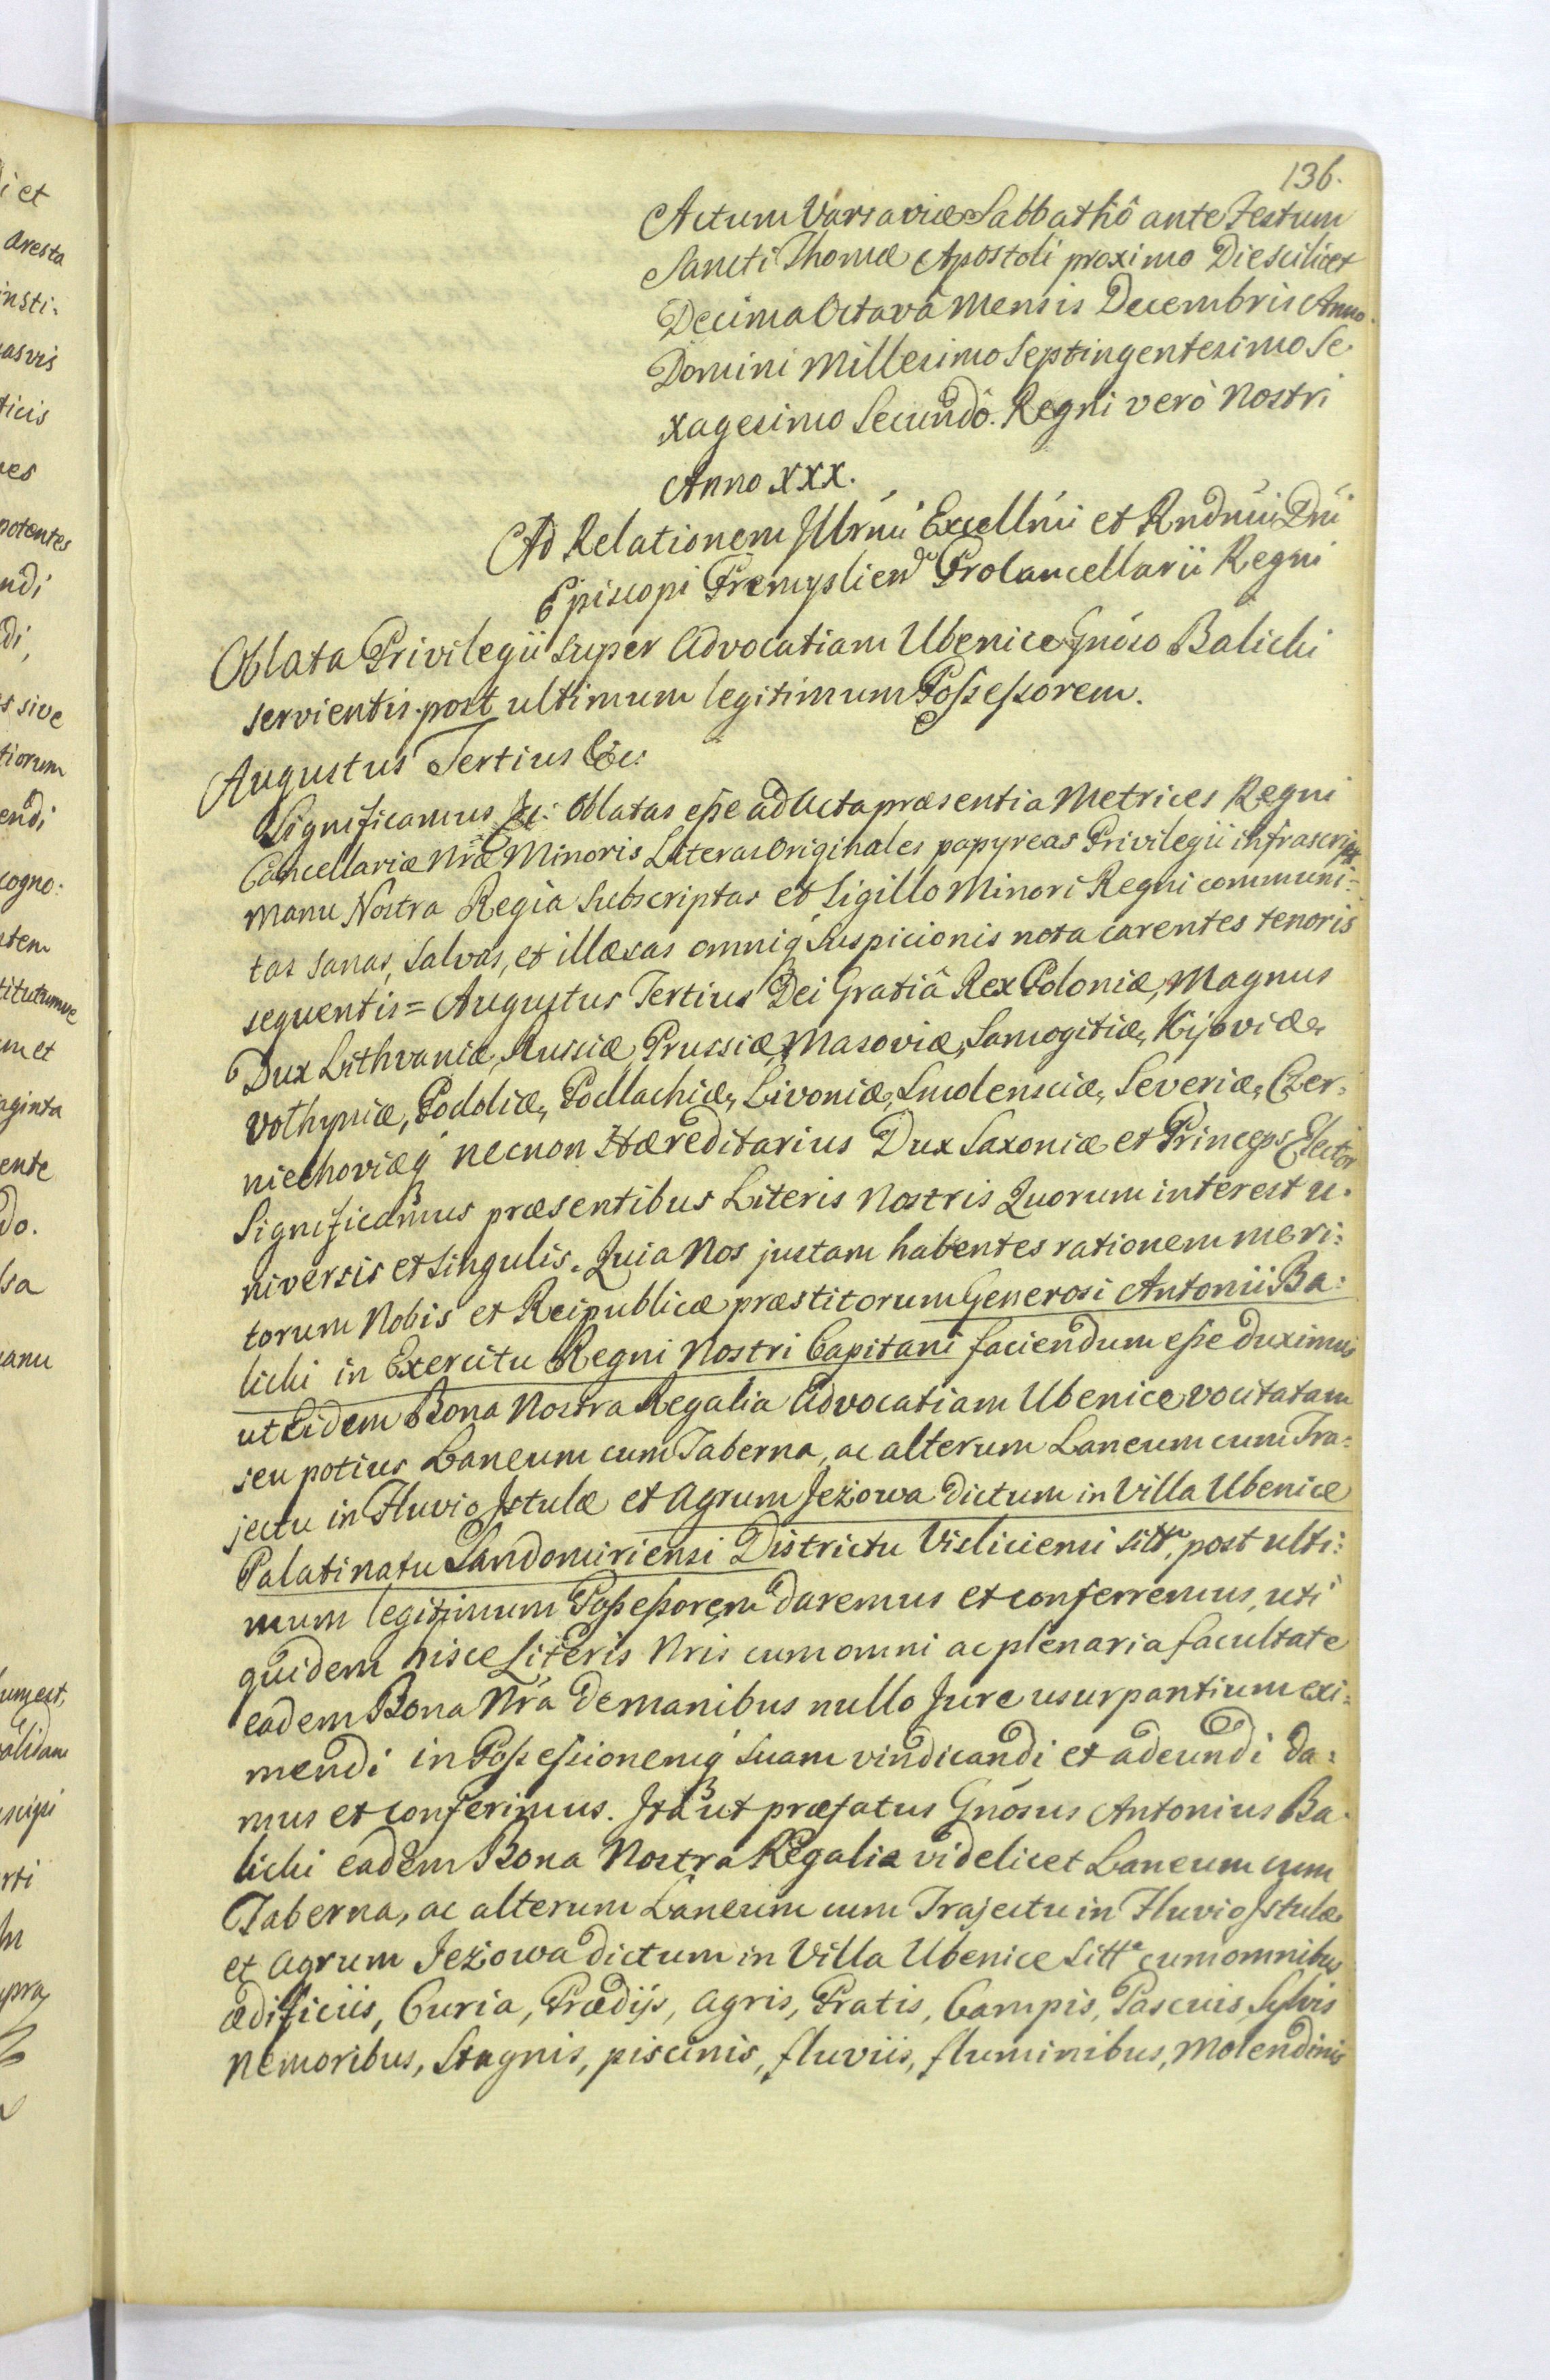 136.
Actum Varsaviæ Sabbathô ante Festum
Sancti Thomæ Apostoli proximo Die scilicet
Decima Octavâ Mensis Decembris Anno
Domini Millesimo Septingentesimo Se
xagesimo Secundô. Regni verò Nostri
Anno XXX.
Ad Relationem Illrm̃i Excellm̃i et Rndm̃i Dñi
Episcopi Premyslien Procancellarii Regni
Oblata Privilegii super Advocatiam Ubenice Gnõso Balichi
servientis post ultimum legitimum Poßeßorem.
Augustus Tertius &c:
Significamus &c: Oblatas eße ad Acta præsentia Metrices Regni
Cancellariæ Nræ Minoris Literas Originales papyreas Privilegii infrascripti
manu Nostra Regiâ Subscriptas et Sigillo Minori Regni communi=
tas sanas, salvas, et illæsas omniq́ Suspicionis nota carentes tenoris
sequentis = Augustus Tertius Dei Gratiâ Rex Poloniæ, Magnus
Dux Lithvaniæ, Russiæ, Prussiæ, Masoviæ, Samogitiæ, Kijoviæ,
Volhyniæ, Podoliæ, Podlachiæ, Livoniæ, Smolensciæ, Severiæ, Czer=
niechoviæq́ necnon Hæreditarius Dux Saxoniæ et Princeps Elector
Significamus præsentibus Literis Nostris Quorum interest u=
niversis et singulis. Quia Nos justam habentes rationem meri=
torum Nobis et Reipublicæ præstitorum Generosi Antonii Ba=
lichi in Exercitu Regni Nostri Capitani faciendum eße duximus
ut Eidem Bona Nostra Regalia Advocatiam Ubenice vocitatam
seu potius Laneum cum Taberna, ac alterum Laneum cum Tra=
jectu in Fluvio Istulæ et Agrum Jeziowa dictum in Villa Ubenice
Palatinatu Sandomiriensi Districtu Visliciensi sitta, post ulti=
mum legitimum Poßeßorem daremus et conferremus, uti
quidem hisce Literis Nris cum omni ac plenaria facultate
eadem Bona Nrã de manibus nullo Jure usurpantium exi=
mendi in Poßeßionemq́ suam vindicandi et adeundi da=
mus et conferimus. Ita ut præfatus Gnõsus Antonius Ba=
lichi eadem Bona Nostra Regalia videlicet Laneum cum
Taberna, ac alterum Laneum cum Trajectu in Fluvio Istulæ
et Agrum Jeziowa dictum in Villa Ubenice Sitta cum omnibus
ædificiis, Curia, Prædijs, Agris, Pratis, Campis, Pascuis, Sylvis
Nemoribus, Stagnis, piscinis, fluviis, fluminibus, Molendinis